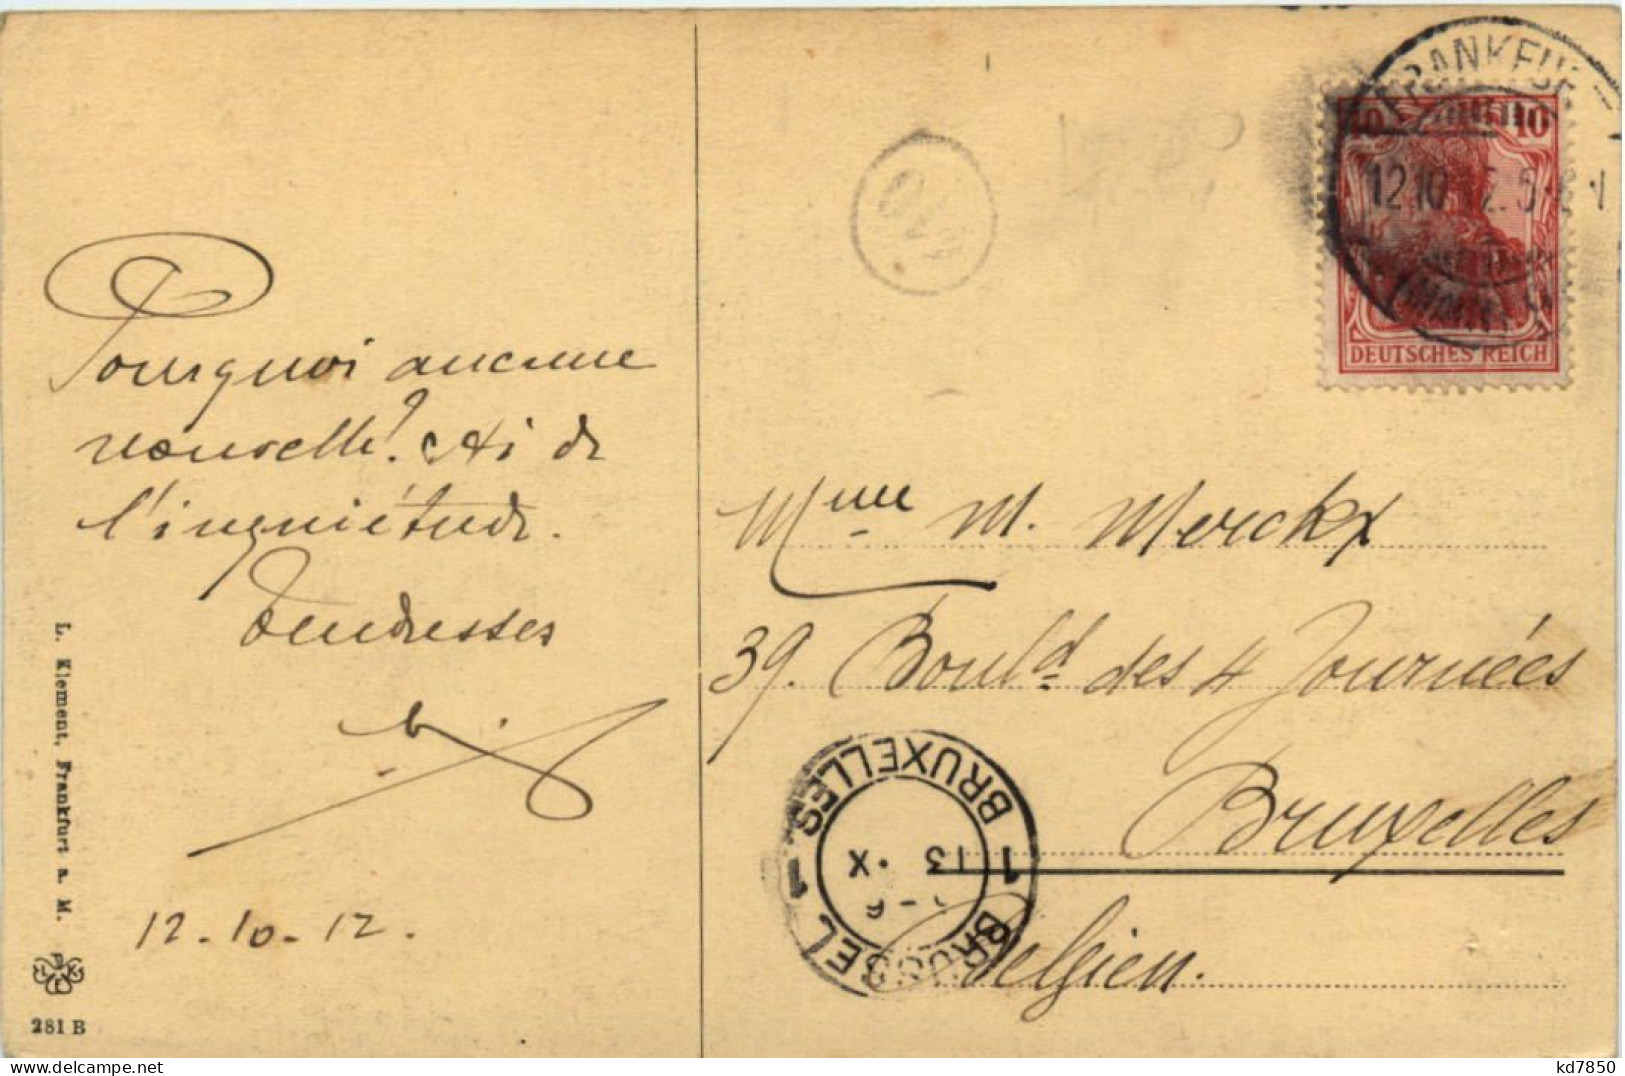 Pourquoi aucune
nouvelle? Ai de
l'inquiétude.
Tendresses
12.10.12.
L. Klement, Frankfurt a. M.
281 B
FRANKFURT
12.10.12.
(MAIN)
10 10
DEUTSCHES REICH
Mme M. Merckx
39. Bould des 4 Journées
Bruxelles
Belgien.
1 BRUXELLES 1
BRUSSEL
13 X
kd7850